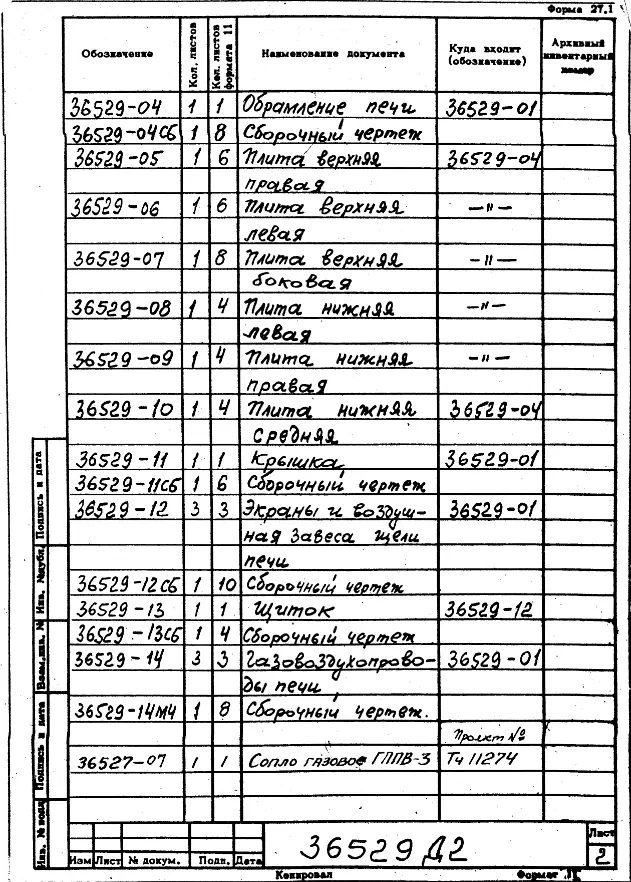 Форма 27.1
Обозначение Кол. листов Кол. листов формата 11 Наименование документа Куда входит (обозначение) Архивный инвентарный номер
36529-04 1 1 Обрамление печи 36529-01
36529-04СБ 1 8 Сборочный чертеж
36529-05 1 6 Плита верхняя 36529-04
правая
36529-06 1 6 Плита верхняя —"—
левая
36529-07 1 8 Плита верхняя —"—
боковая
36529-08 1 4 Плита нижняя —"—
левая
36529-09 1 4 Плита нижняя —"—
правая
36529-10 1 4 Плита нижняя 36529-04
средняя
36529-11 1 1 Крышка 36529-01
36529-11СБ 1 6 Сборочный чертеж
36529-12 3 3 Экраны и воздуш- 36529-01
ная завеса щели
печи
36529-12СБ 1 10 Сборочный чертеж
36529-13 1 1 Щиток 36529-12
36529-13СБ 1 4 Сборочный чертеж
36529-14 3 3 Газовоздухопрово- 36529-01
ды печи
36529-14МЧ 1 8 Сборочный чертеж.
Проект №
36527-07 1 1 Сопло газовое ГППВ-3 ТЧ 11274
Подпись и дата
Инв. № дубл.
Взам. инв. №
Подпись и дата
Инв. № подл.
Изм Лист № докум. Подп. Дата
36529 Д2
Лист
2
Копировал Формат 11